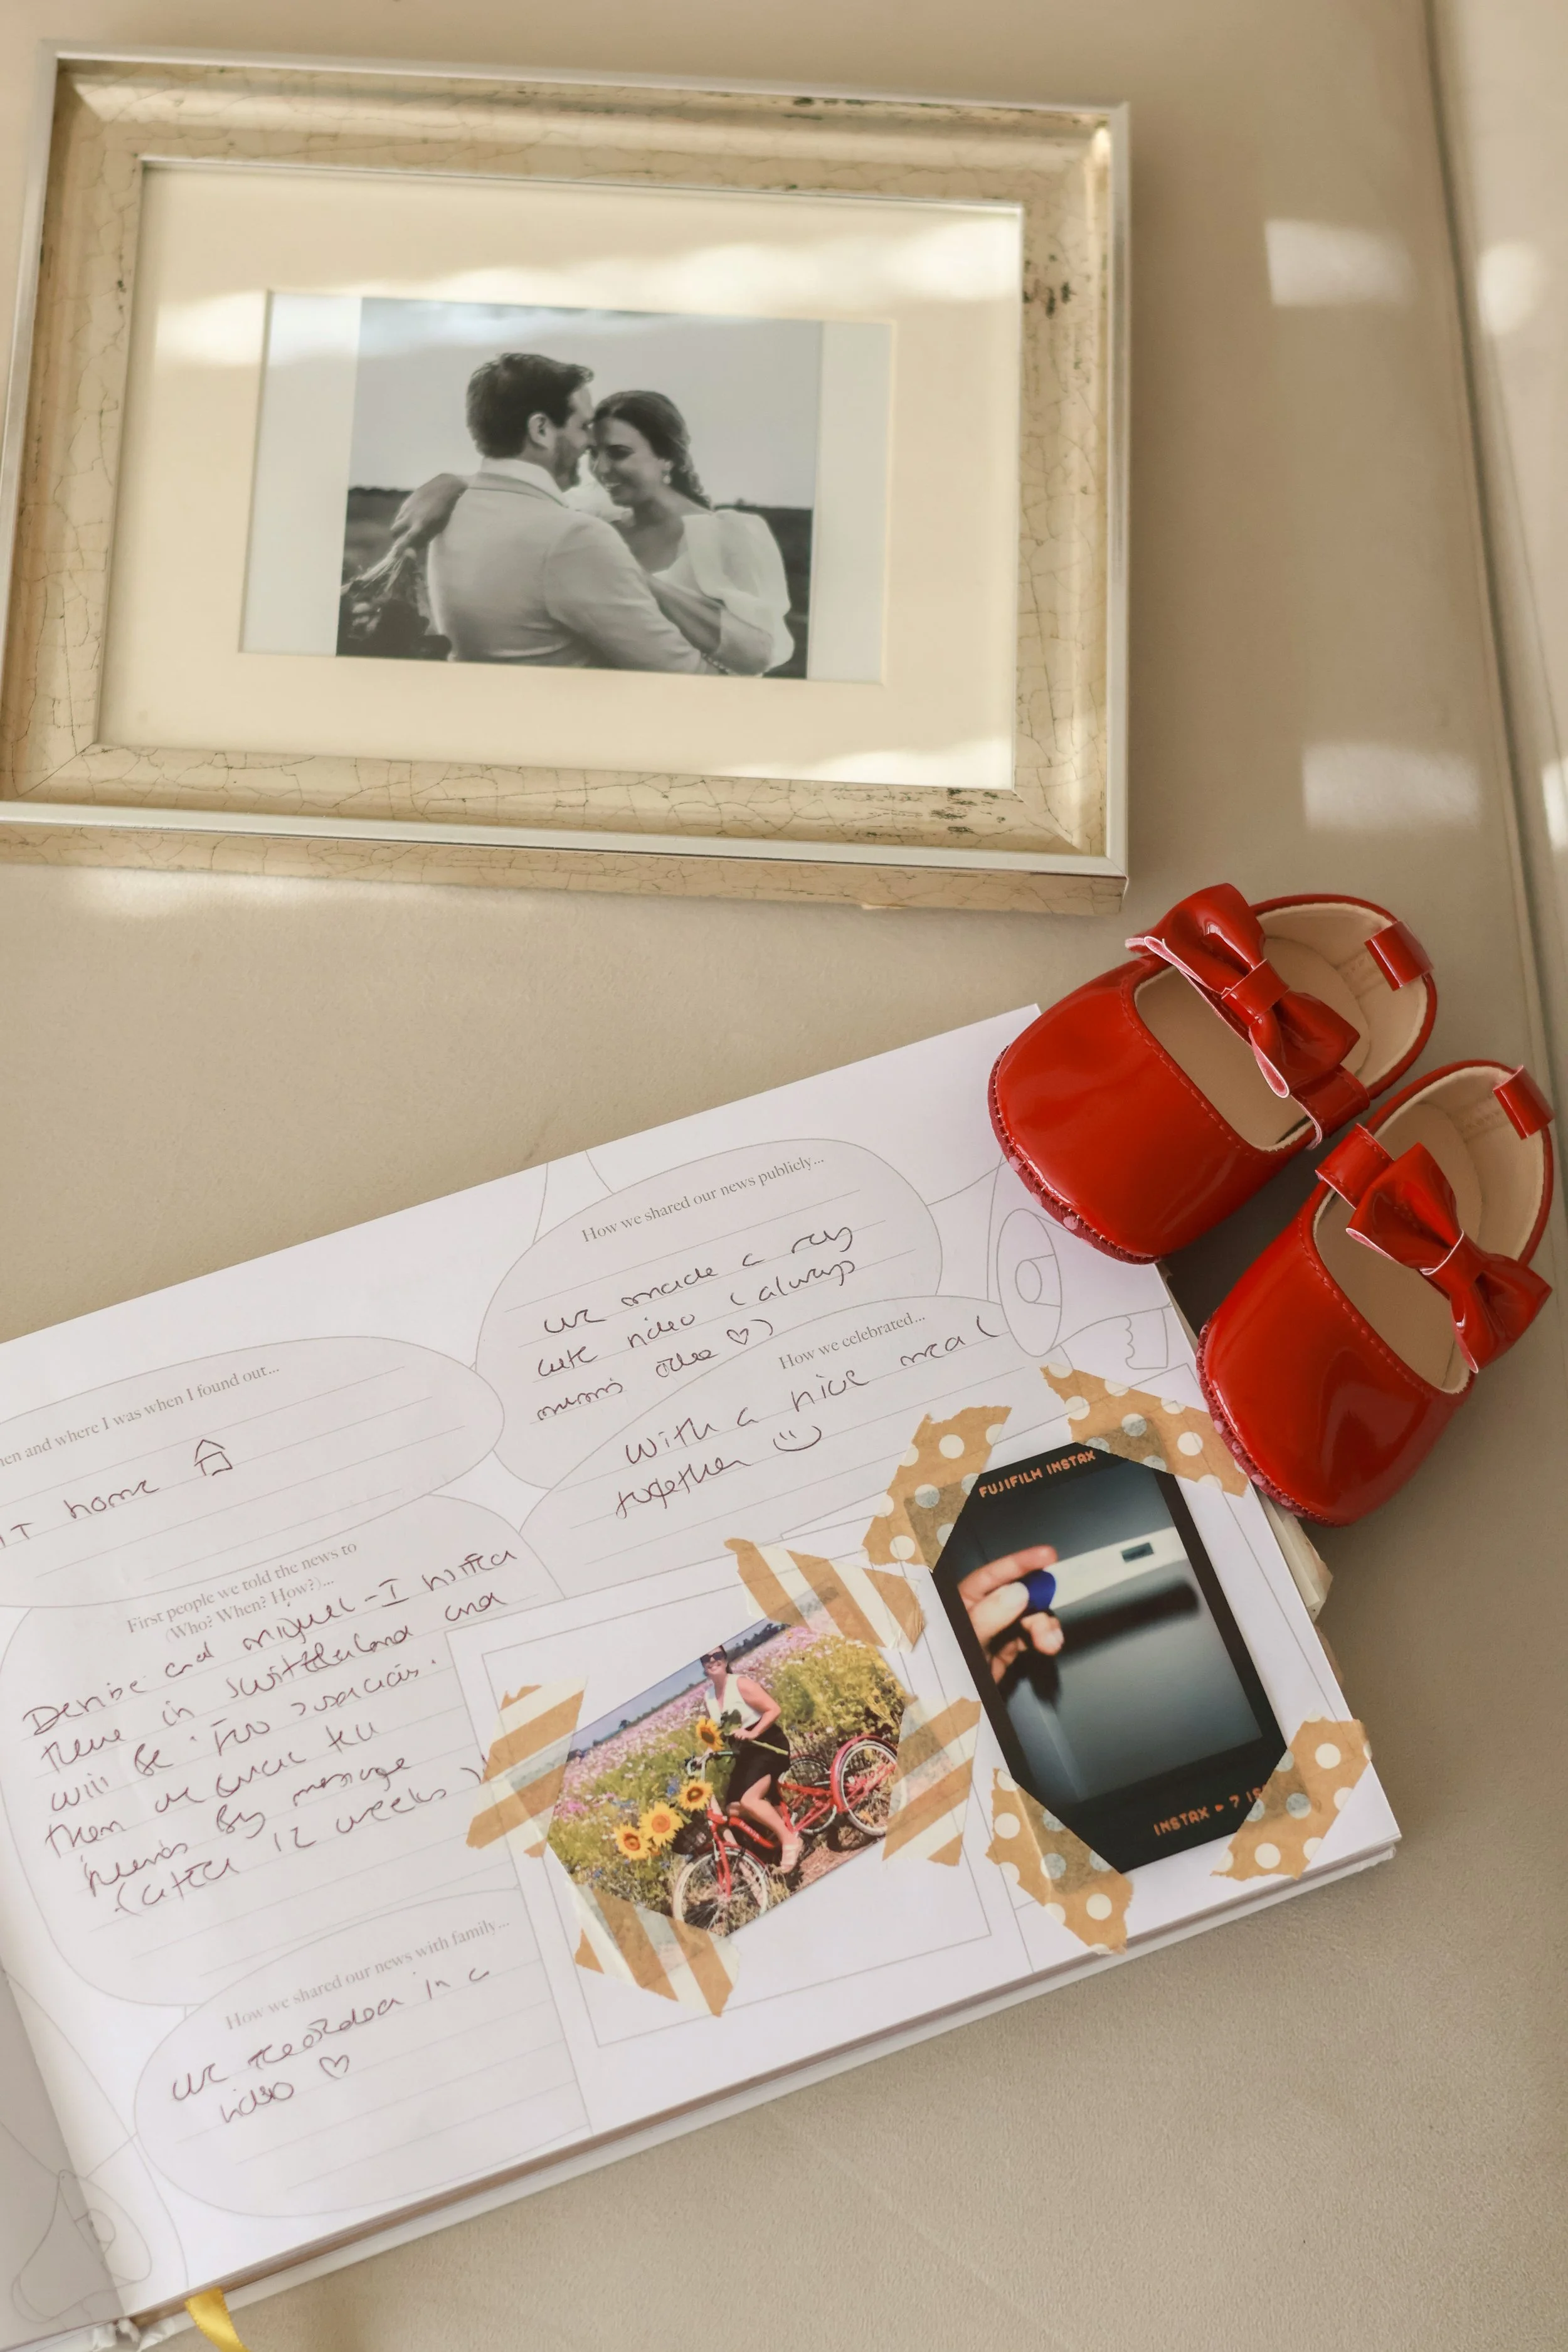 How we shared our news publicly...
we made a very
cute video (always
mum's idea ♡)
How we celebrated...
With a nice meal
together
when I found out...
home
First people we told the news to
(Who? When? How?)...
Denise and Miguel - I
in Switzerland and
will be
Then we gave the
news by message
(after 12 weeks)
How we shared our news with family...
we recorded in a
video ♡
FUJIFILM INSTAX
INSTAX